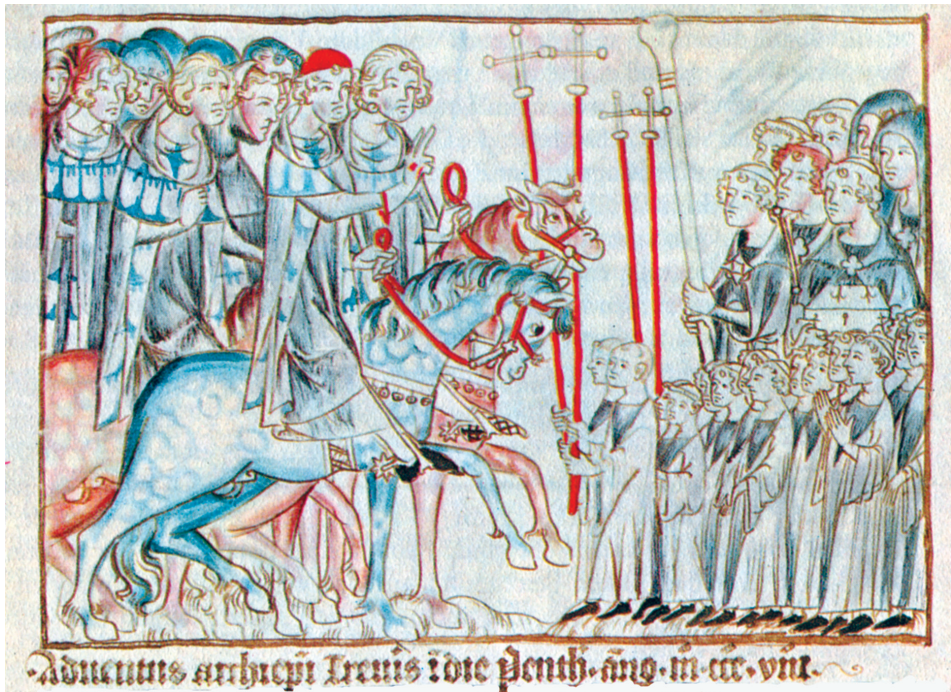 Aduentus archiepi Treuis i die Penth · ano · m · ccc · viii ·